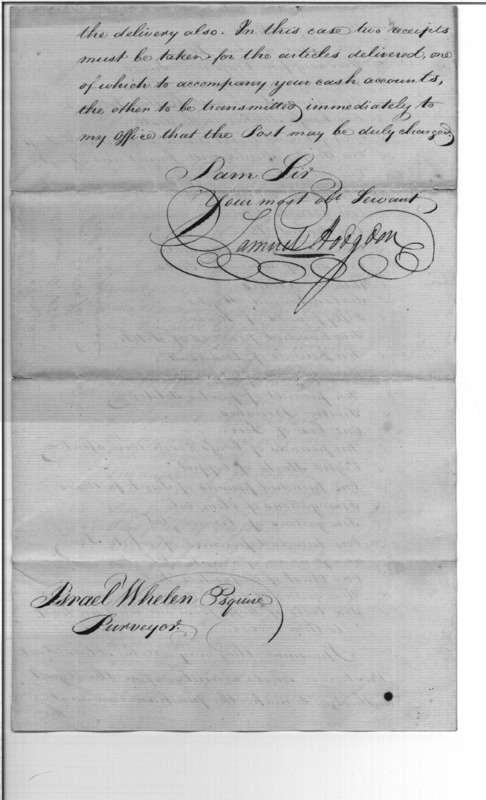 the delivery also. In this case two receipts
must be taken for the articles delivered, one
of which to accompany your cash accounts,
the other to be transmitted immediately to
my Office that the Post may be duly charged
I am Sir
Your most obt Servant
Samuel Hodgdon
Israel Whelen Esquire
Purveyor.